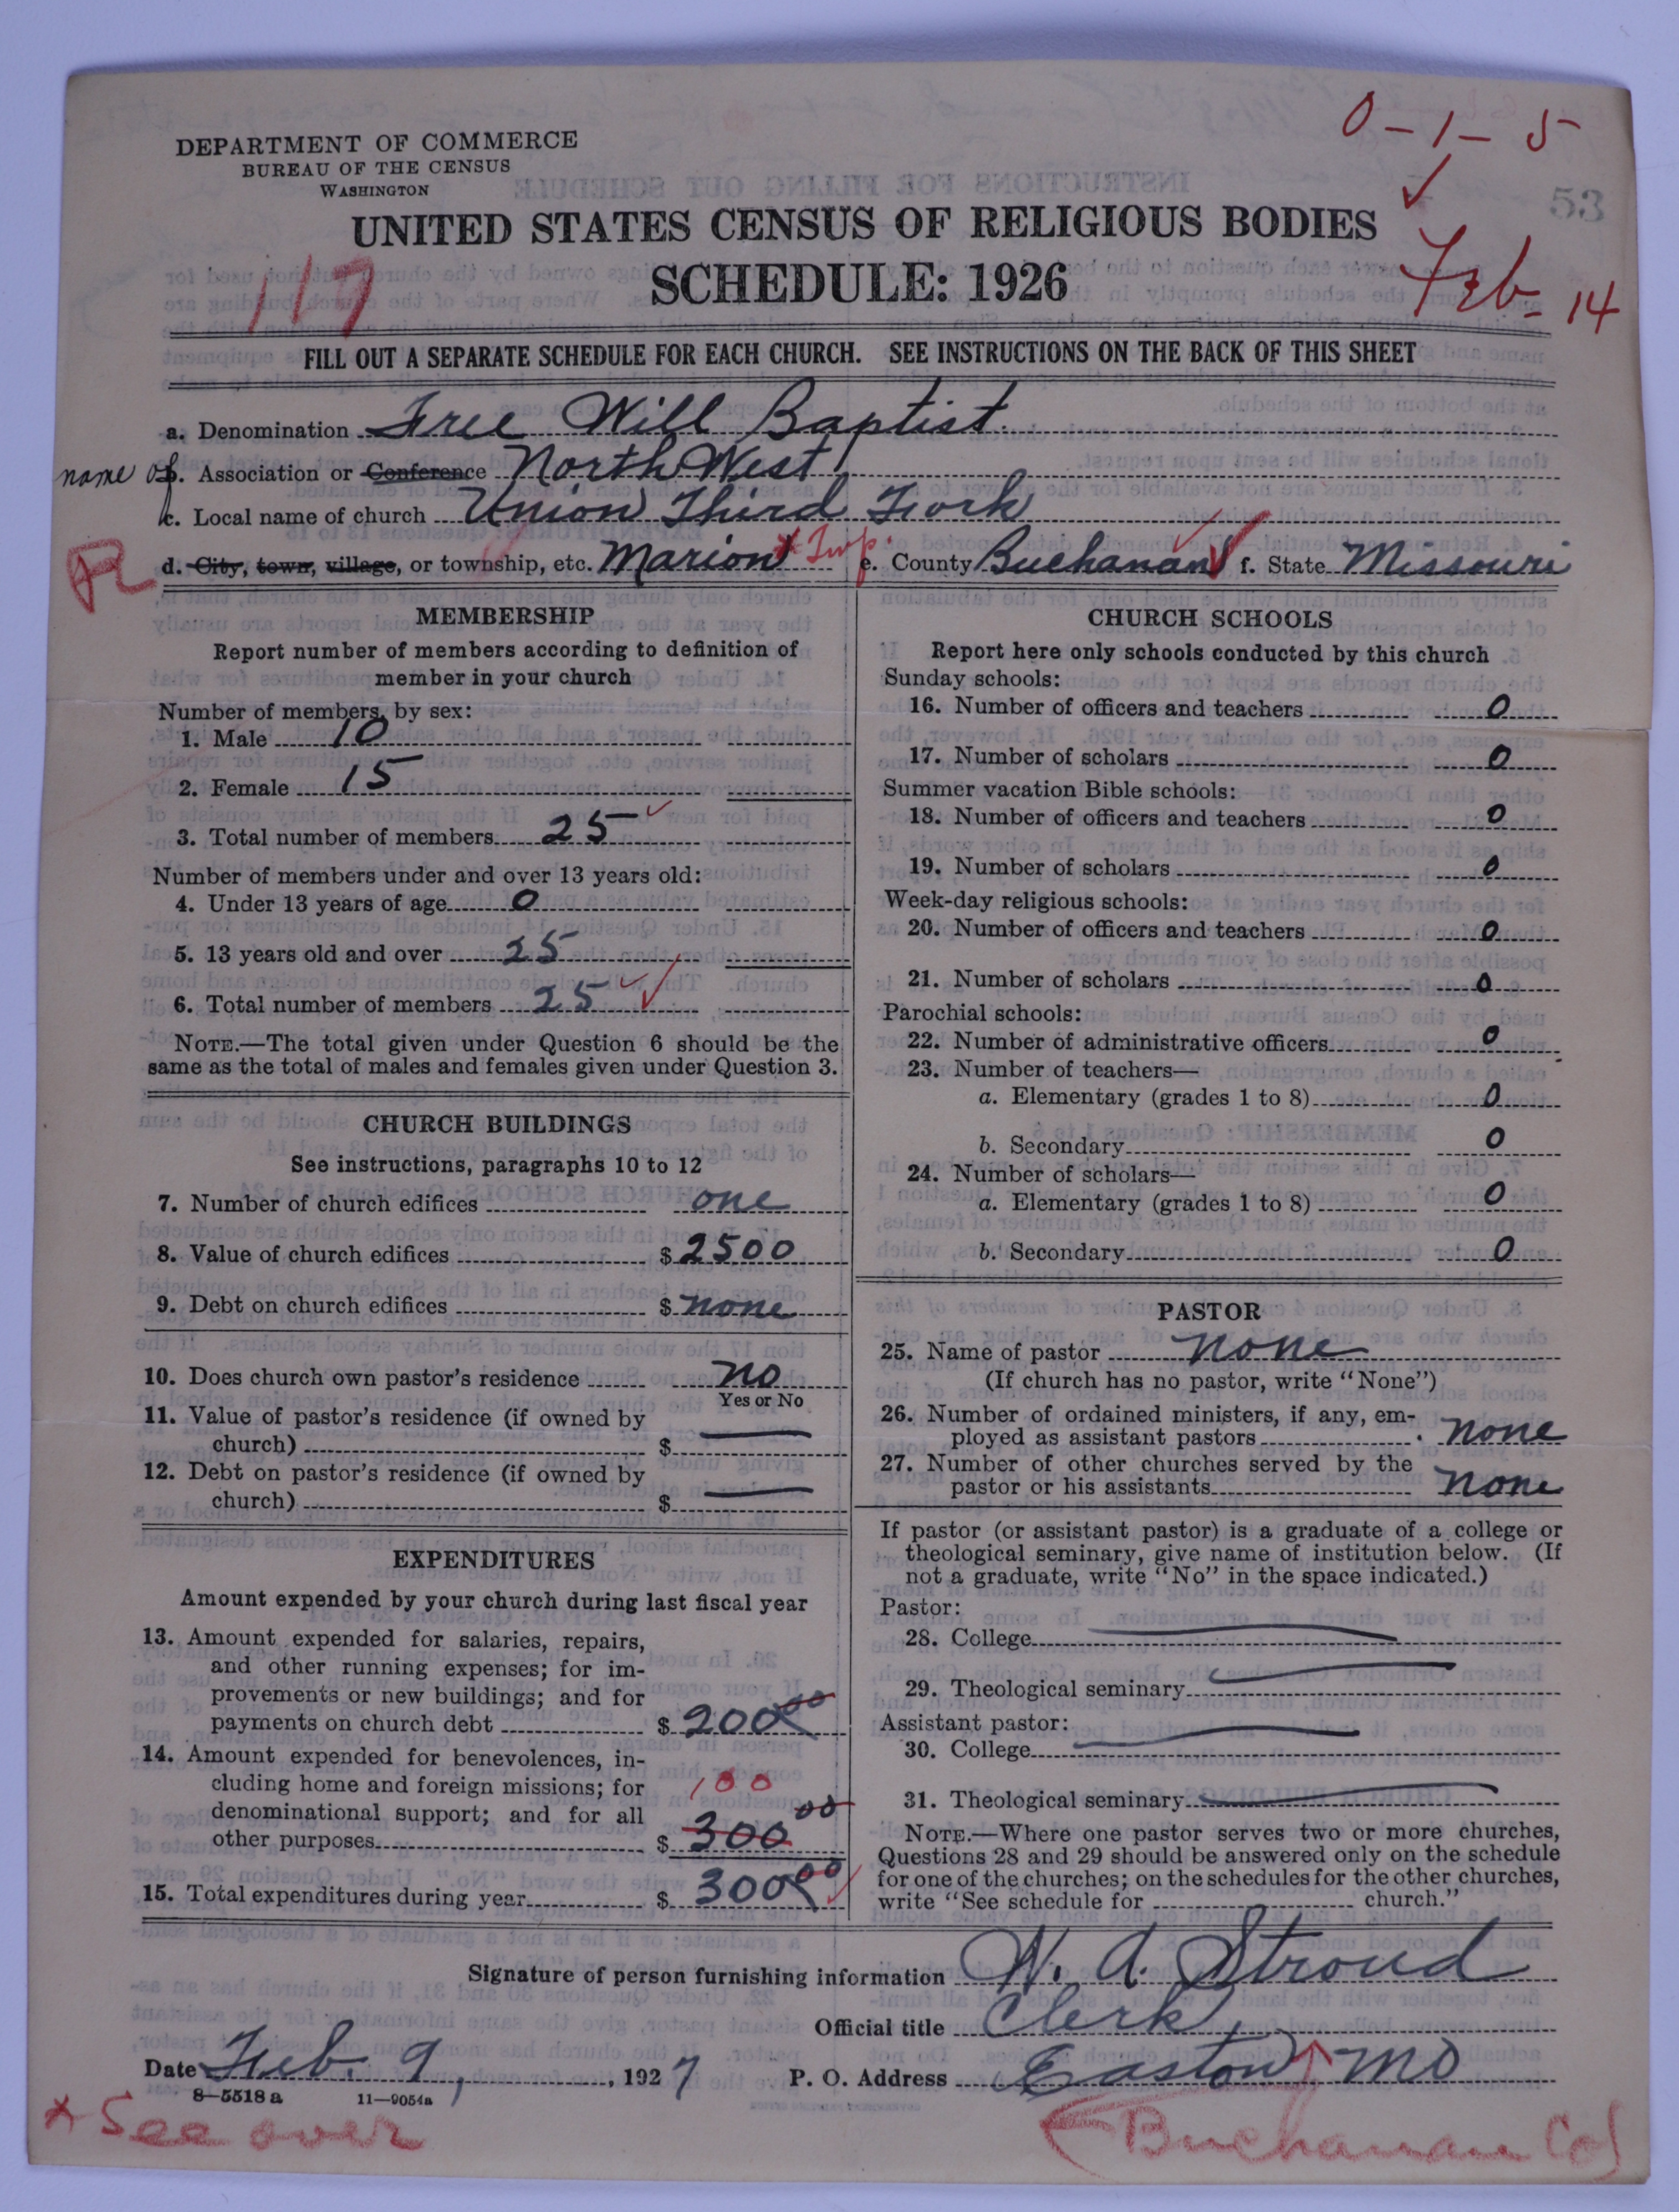 0-1-5
DEPARTMENT OF COMMERCE
BUREAU OF THE CENSUS
WASHINGTON
53
UNITED STATES CENSUS OF RELIGIOUS BODIES
SCHEDULE: 1926
117
Feb- 14
FILL OUT A SEPARATE SCHEDULE FOR EACH CHURCH. SEE INSTRUCTIONS ON THE BACK OF THIS SHEET
a. Denomination Free Will Baptist
name of b. Association or Conference North West
c. Local name of church Union Third Fork
d. City, town, village, or township, etc. Marion * Twp. e. County Buchanan f. State Missouri
MEMBERSHIP
Report number of members according to definition of
member in your church
Number of members, by sex:
1. Male 10
2. Female 15
3. Total number of members 25
Number of members under and over 13 years old:
4. Under 13 years of age 0
5. 13 years old and over 25
6. Total number of members 25
NOTE.—The total given under Question 6 should be the
same as the total of males and females given under Question 3.
CHURCH BUILDINGS
See instructions, paragraphs 10 to 12
7. Number of church edifices one
8. Value of church edifices $ 2500
9. Debt on church edifices $ none
10. Does church own pastor's residence no
Yes or No
11. Value of pastor's residence (if owned by
church) $ —
12. Debt on pastor's residence (if owned by
church) $ —
EXPENDITURES
Amount expended by your church during last fiscal year
13. Amount expended for salaries, repairs,
and other running expenses; for im-
provements or new buildings; and for
payments on church debt $ 200 00
14. Amount expended for benevolences, in-
cluding home and foreign missions; for 100
denominational support; and for all
other purposes $ 300 00
15. Total expenditures during year $ 300 00
CHURCH SCHOOLS
Report here only schools conducted by this church
Sunday schools:
16. Number of officers and teachers 0
17. Number of scholars 0
Summer vacation Bible schools:
18. Number of officers and teachers 0
19. Number of scholars 0
Week-day religious schools:
20. Number of officers and teachers 0
21. Number of scholars 0
Parochial schools:
22. Number of administrative officers 0
23. Number of teachers—
a. Elementary (grades 1 to 8) 0
b. Secondary 0
24. Number of scholars—
a. Elementary (grades 1 to 8) 0
b. Secondary 0
PASTOR
25. Name of pastor none
(If church has no pastor, write "None")
26. Number of ordained ministers, if any, em-
ployed as assistant pastors none
27. Number of other churches served by the
pastor or his assistants none
If pastor (or assistant pastor) is a graduate of a college or
theological seminary, give name of institution below. (If
not a graduate, write "No" in the space indicated.)
Pastor:
28. College —
29. Theological seminary —
Assistant pastor:
30. College —
31. Theological seminary —
NOTE.—Where one pastor serves two or more churches,
Questions 28 and 29 should be answered only on the schedule
for one of the churches; on the schedules for the other churches,
write "See schedule for church."
Signature of person furnishing information W. A. Stroud
Official title Clerk
Date Feb. 9, 1927 P. O. Address Easton Mo
8—5518 a 11—9054a
* See over
(Buchanan Co)